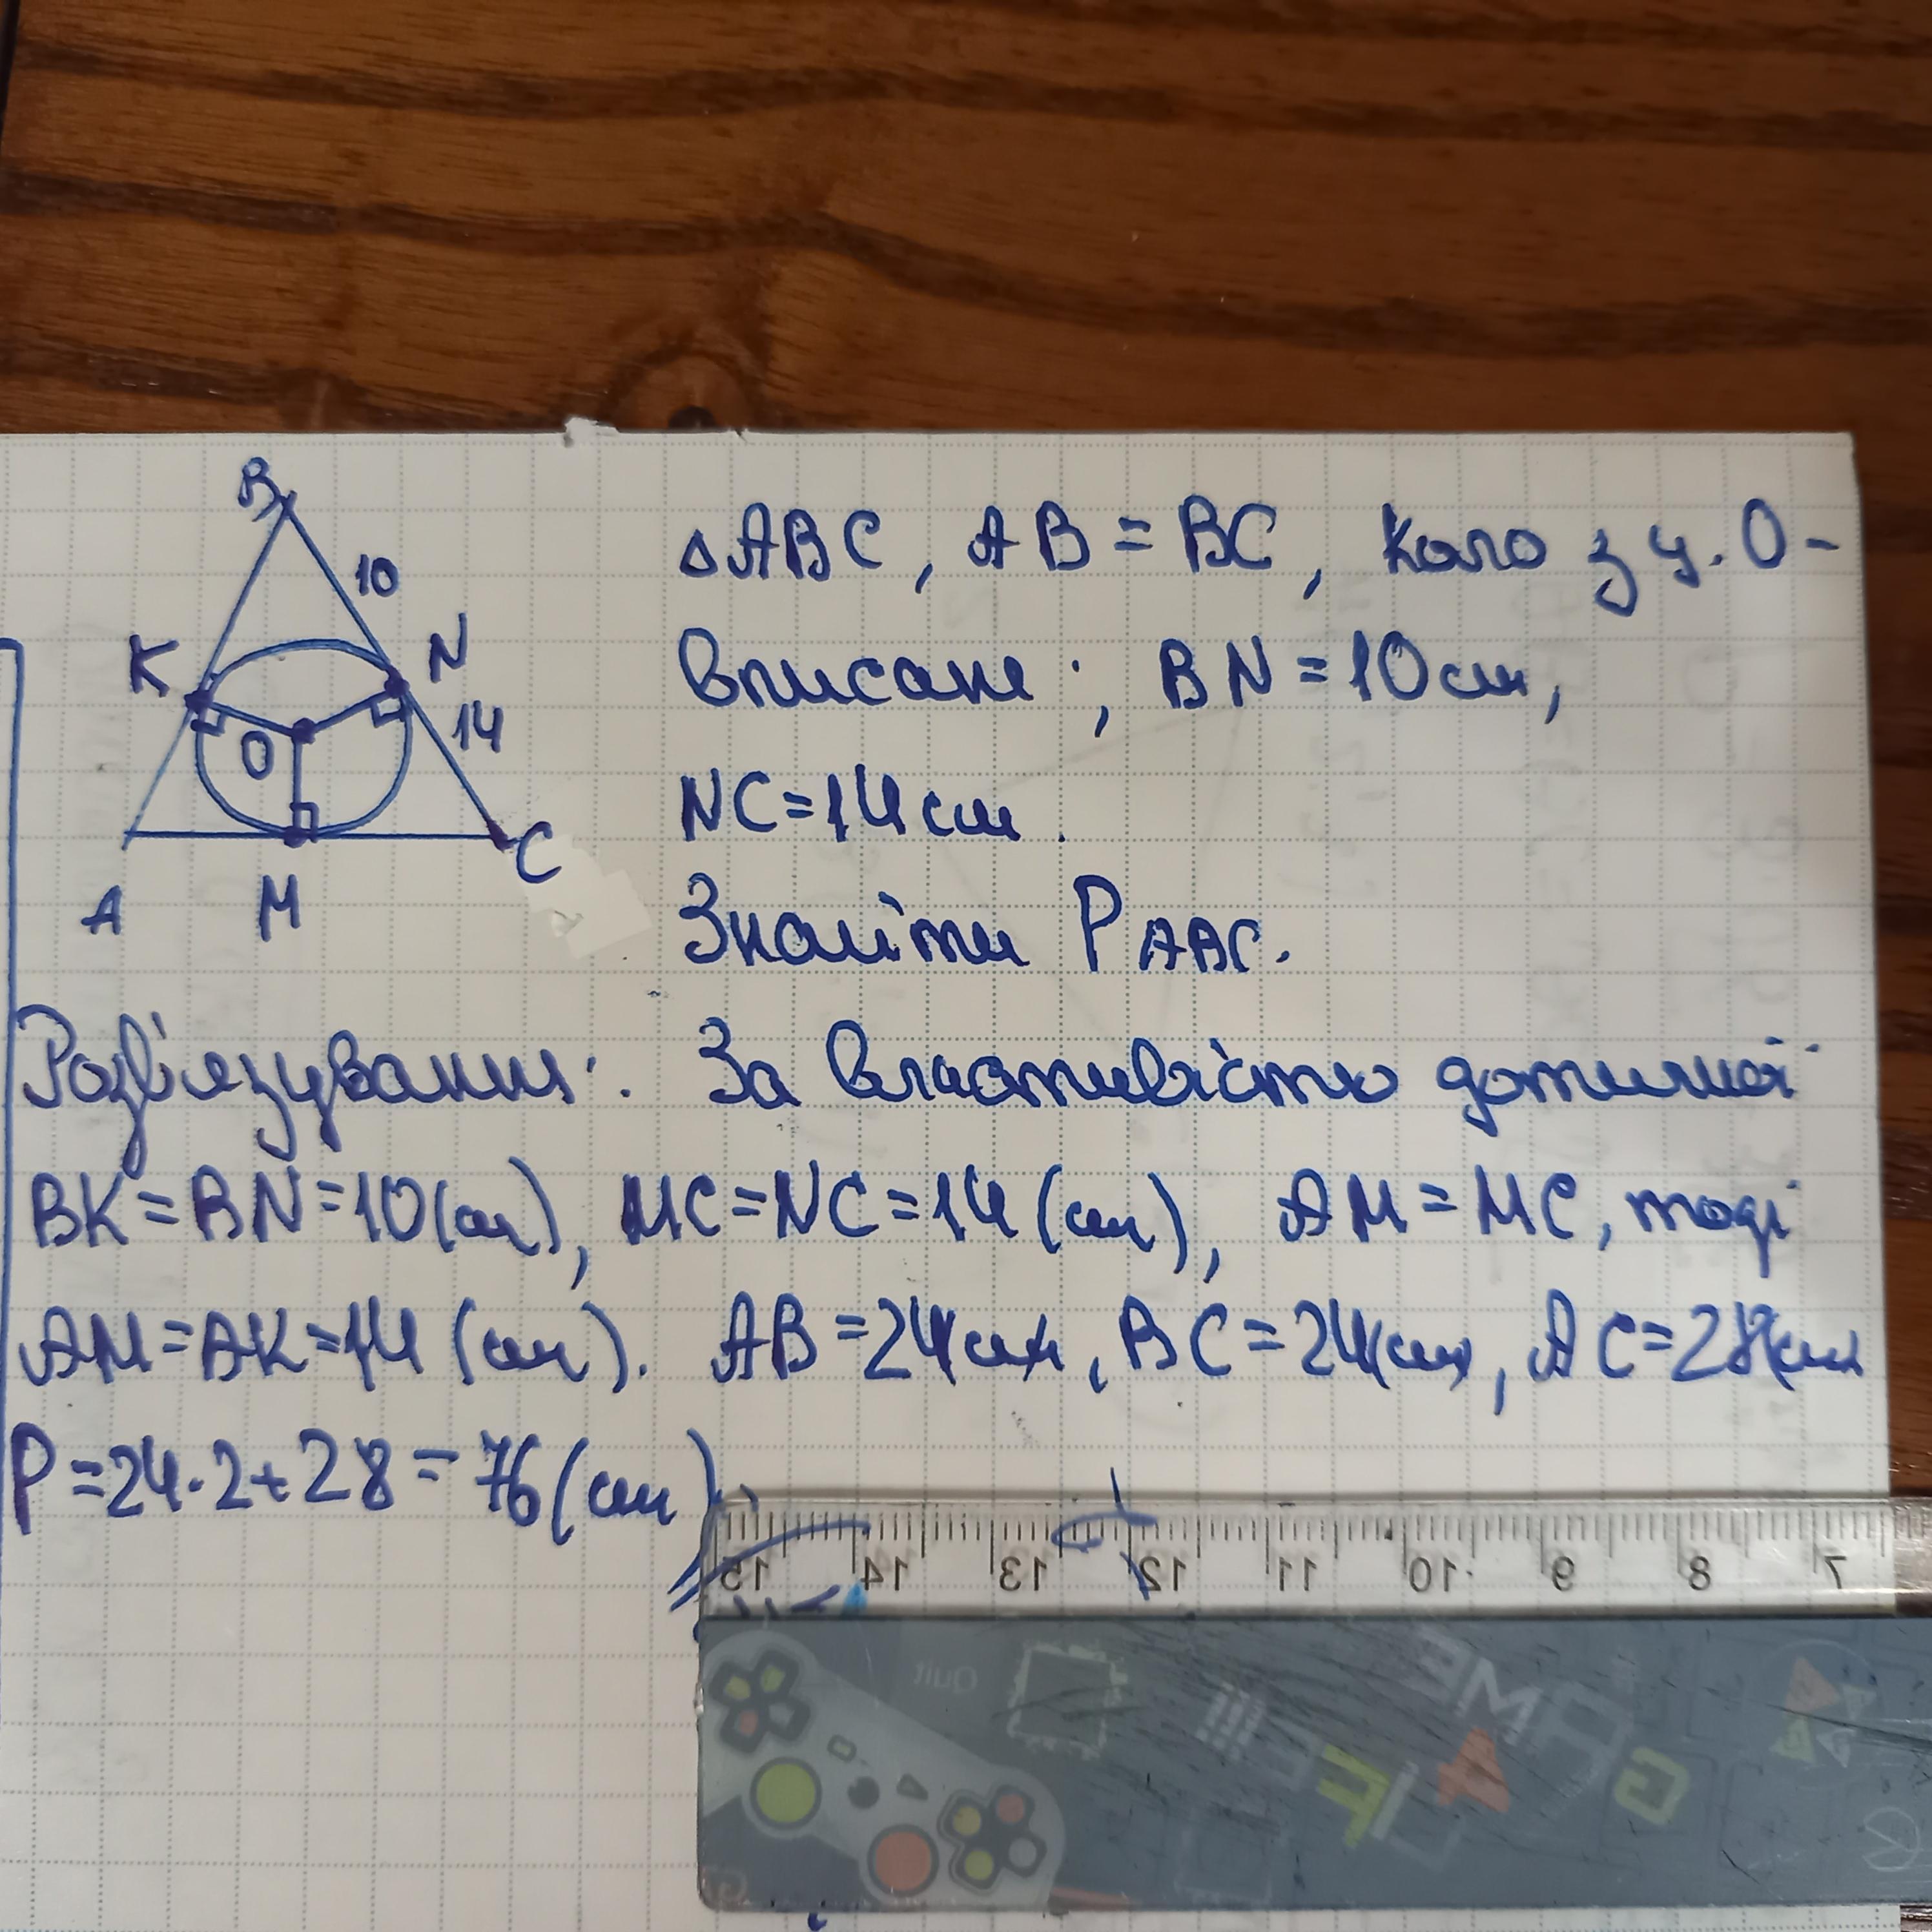 B
10
K
N
14
O
C
A
M
△ABC, AB = BC, коло з ц. O -
вписане; BN = 10 см,
NC = 14 см.
Знайти P ABC.
Розв'язування: За властивістю дотичної
BK = BN = 10 (см), MC = NC = 14 (см), AM = MC, тоді
AM = AK = 14 (см). AB = 24 см, BC = 24 (см), AC = 28 (см
P = 24 · 2 + 28 = 76 (см)
15 14 13 12 11 10 9 8 7
Quit
GAME